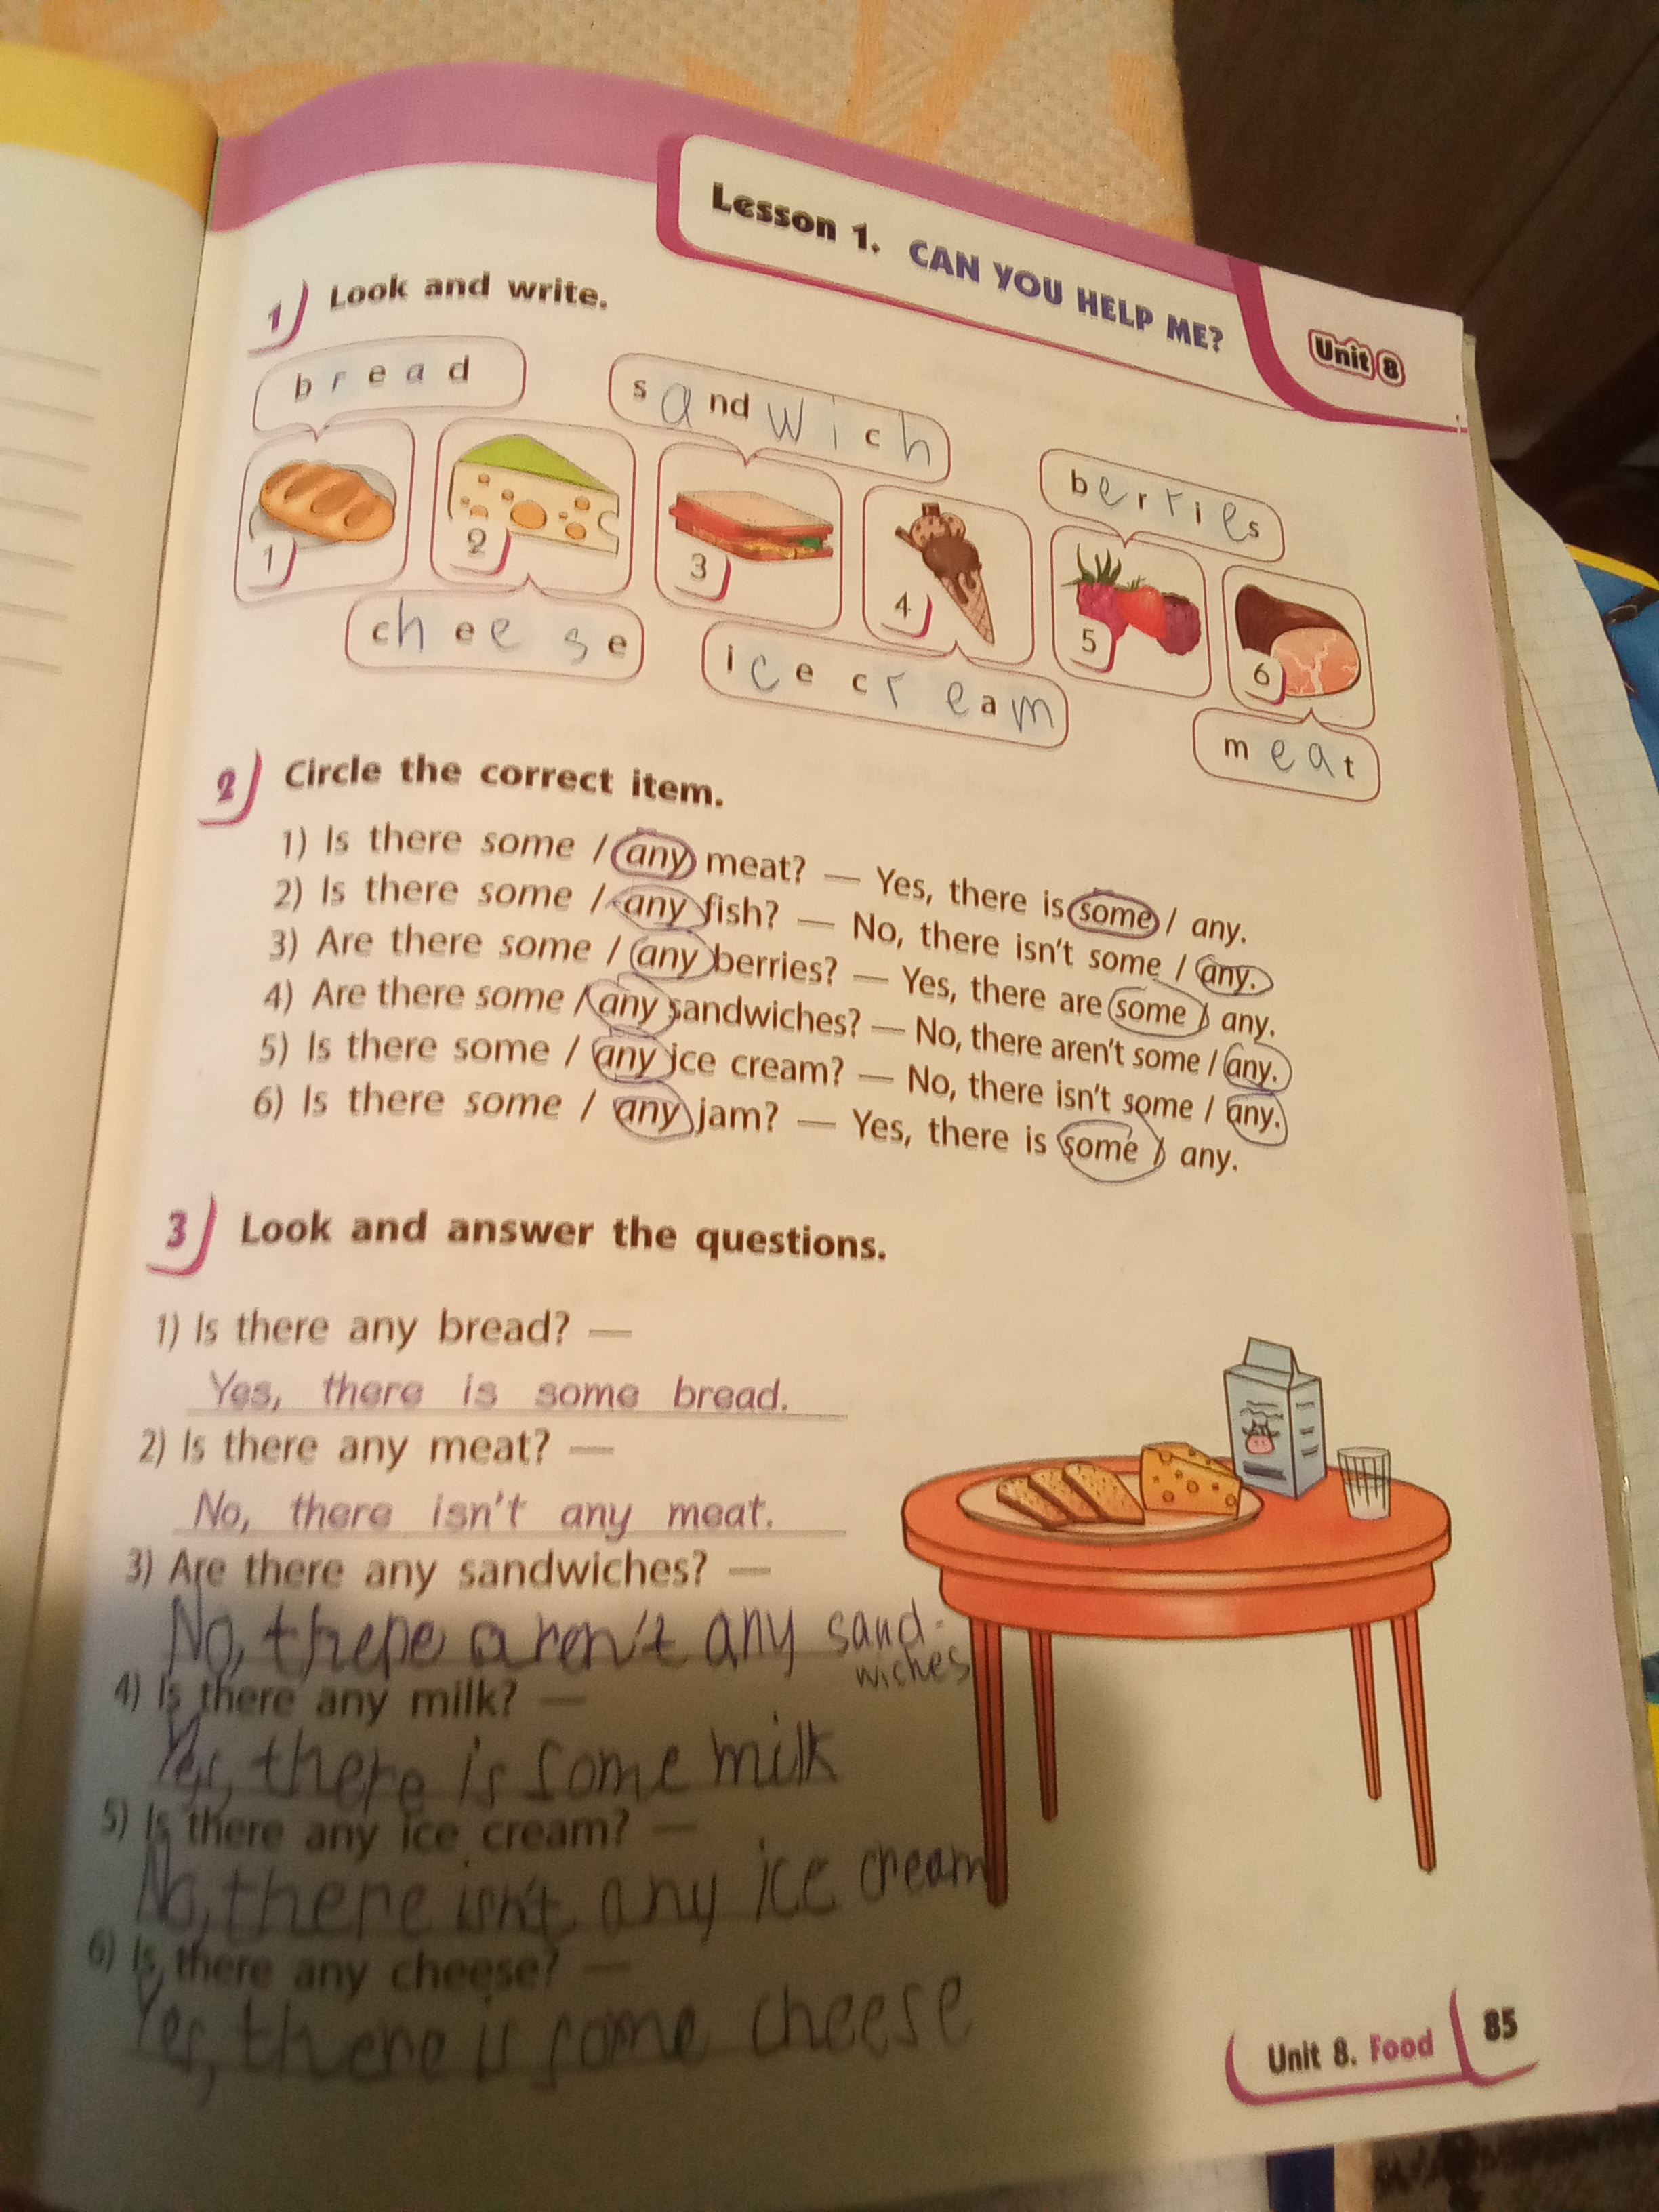 Lesson 1. CAN YOU HELP ME?
Unit 8
1 Look and write.
bread
sandwich
berries
1
2
3
4
5
6
cheese
ice cream
meat
2 Circle the correct item.
1) Is there some / any meat? — Yes, there is some / any.
2) Is there some / any fish? — No, there isn't some / any.
3) Are there some / any berries? — Yes, there are some / any.
4) Are there some / any sandwiches? — No, there aren't some / any.
5) Is there some / any ice cream? — No, there isn't some / any.
6) Is there some / any jam? — Yes, there is some / any.
3 Look and answer the questions.
1) Is there any bread? —
Yes, there is some bread.
2) Is there any meat? —
No, there isn't any meat.
3) Are there any sandwiches? —
No, there aren't any sand-
wiches
4) Is there any milk? —
Yes, there is some milk
5) Is there any ice cream? —
No, there isn't any ice cream
6) Is there any cheese? —
Yes, there is some cheese
Unit 8. Food 85